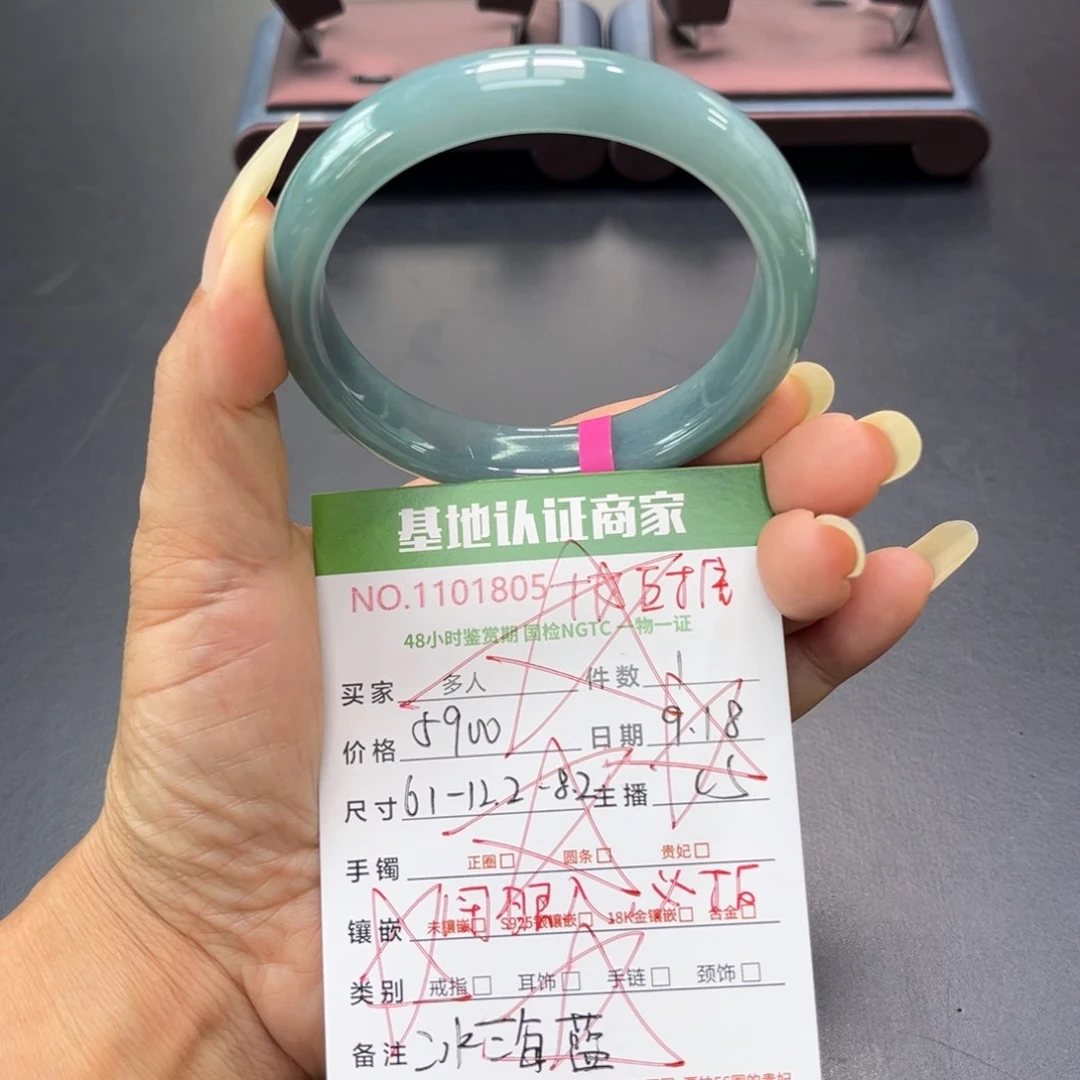 基地认证商家
NO.1101805
48小时鉴赏期 国检NGTC 一物一证
买家 多人 件数 1
价格 5900 日期 9.18
尺寸 61-12.2-8.2 主播
手镯 正圈□ 圆条□ 贵妃□
闭眼入 必顶
镶嵌 未镶嵌□ S925银镶嵌□ 18K金镶嵌□ 合金□
类别 戒指□ 耳饰□ 手链□ 颈饰□
备注 冰海蓝